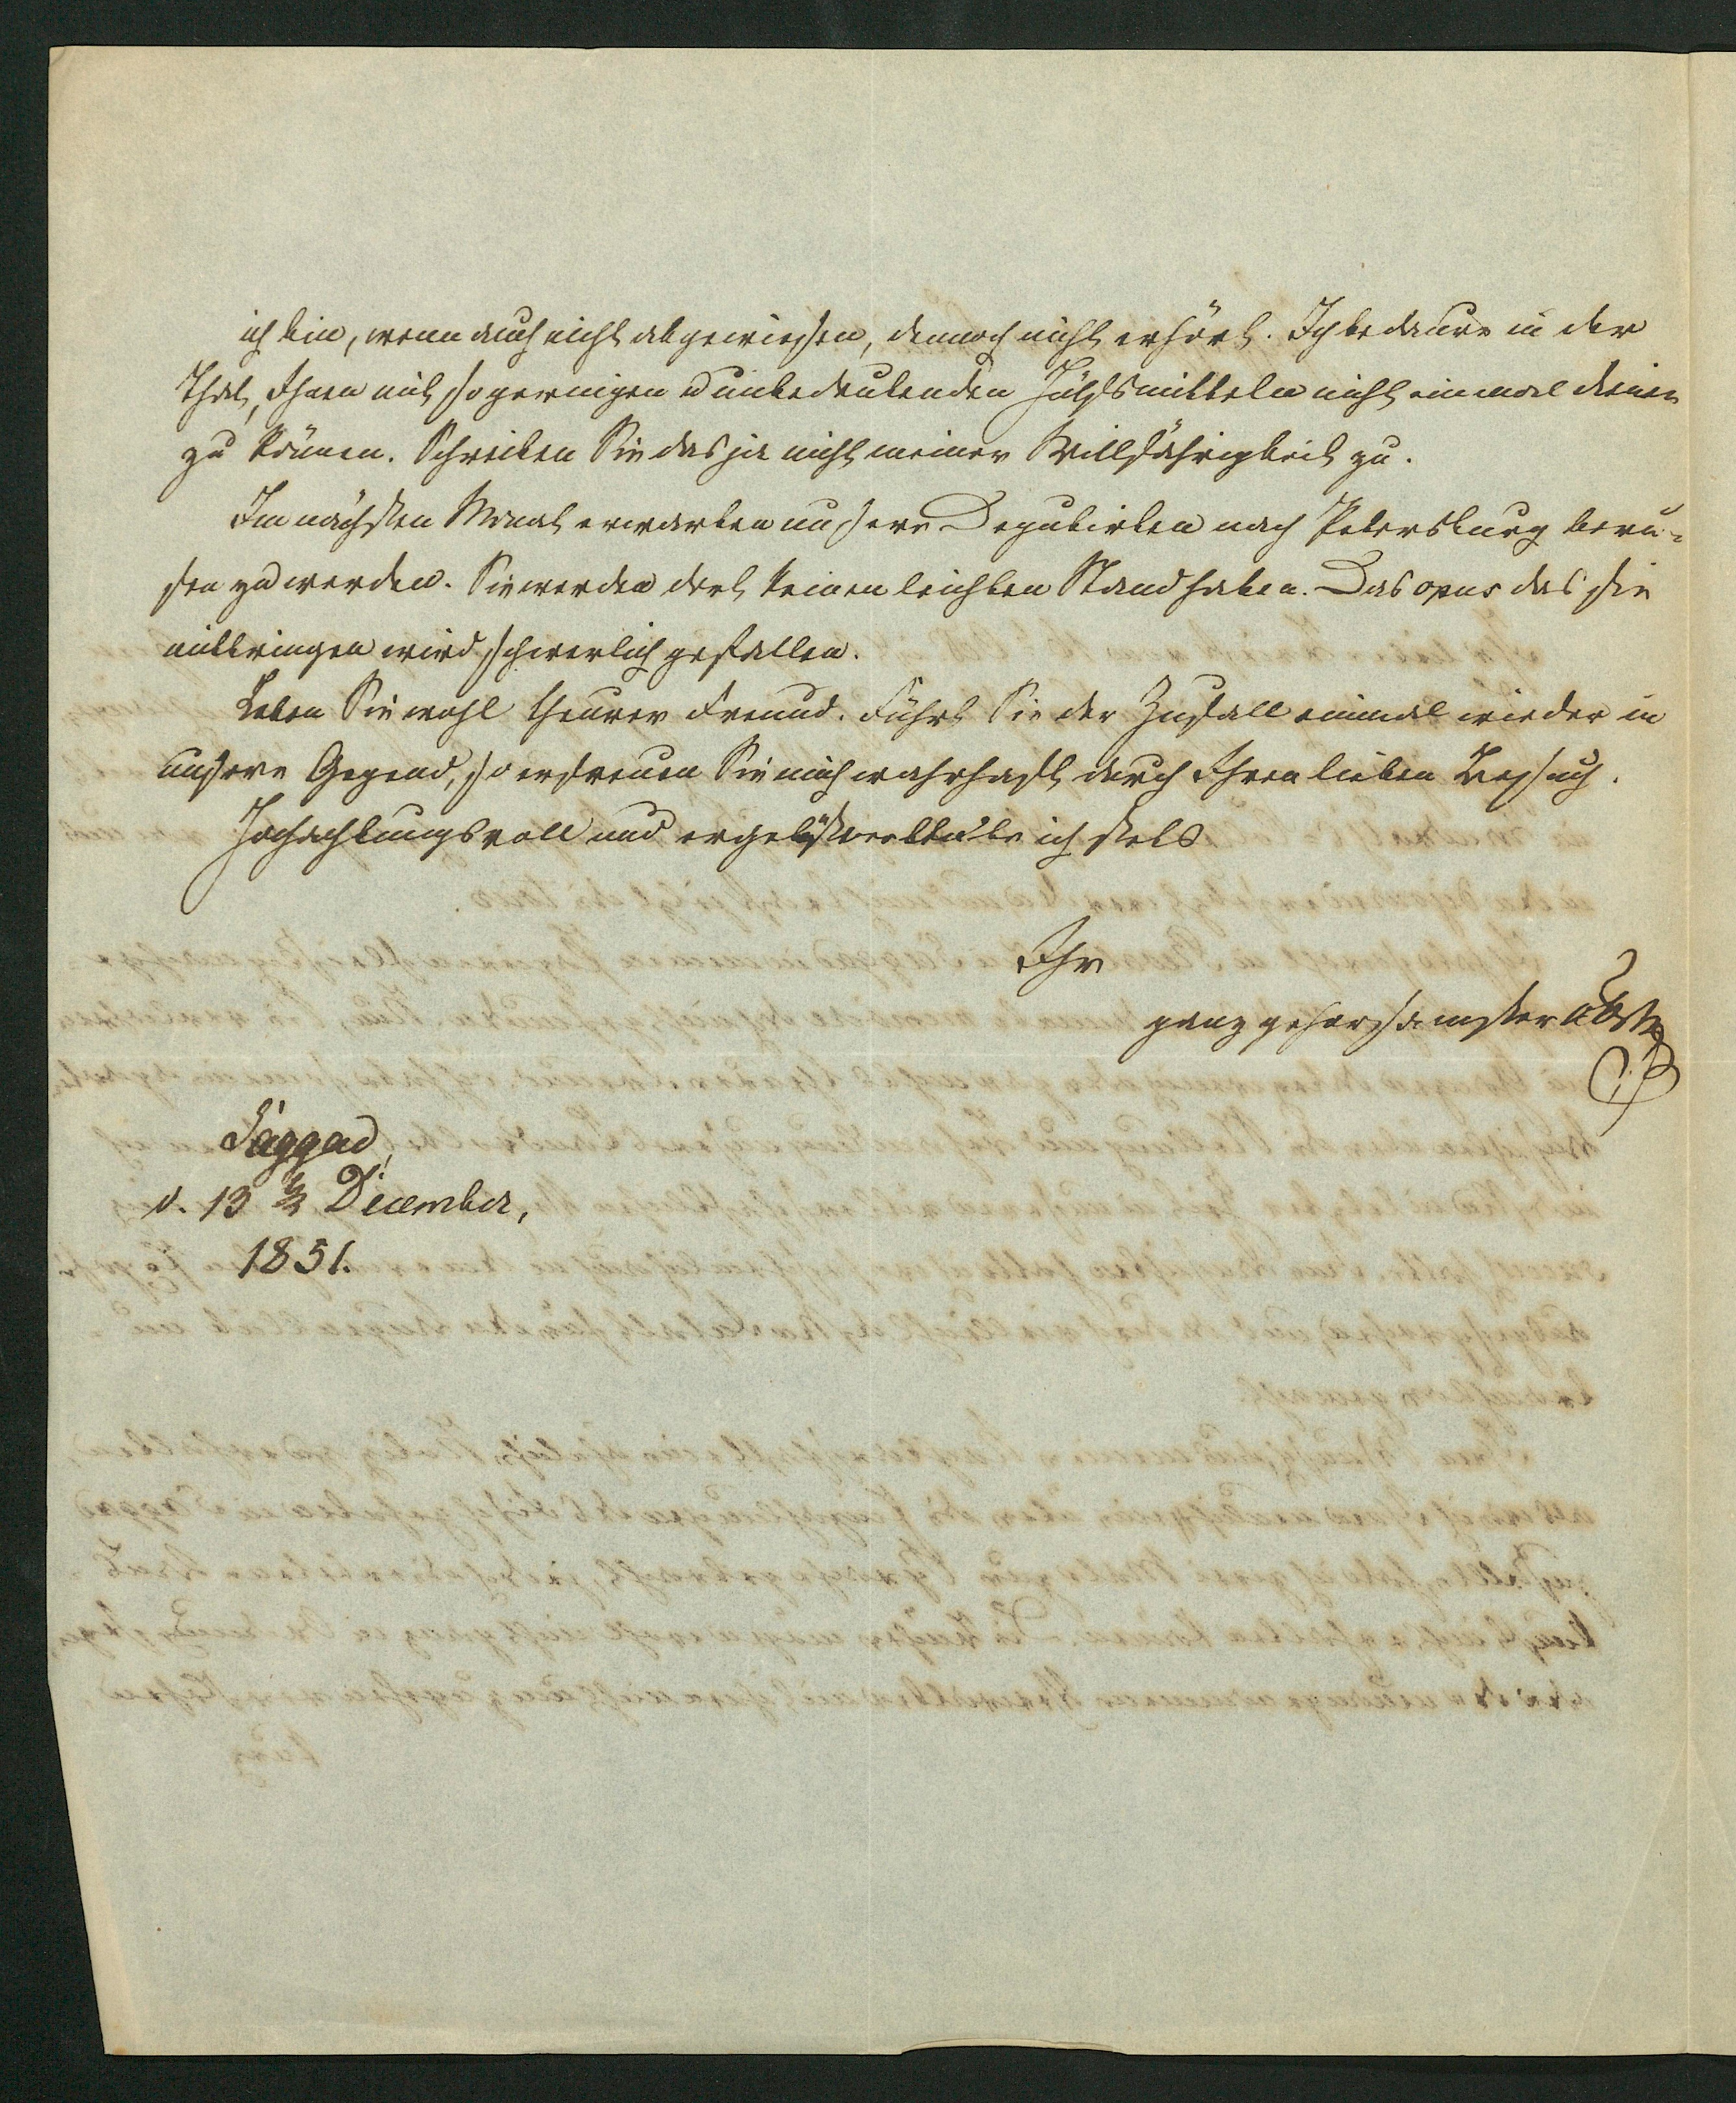 ich bin, wenn auch nicht abgewiesen, dennoch nicht erhört. Ich bedaure in der
That, Ihnen mit so geringen u unbedeutenden Hülfsmitteln nicht einmal dienen
zu können. Schreiben Sie das ja nicht meiner Willfährigkeit zu.
Im nächsten Monat erwarten unsere Deputirten nach Petersburg beru-
fen zu werden. Sie werden dort keinen leichten Stand haben. Das opus das sie
mitbringen wird schwerlich gefallen.
Leben Sie wohl theurer Freund. Führt Sie der Zufall einmal wieder in
unsere Gegend, so erfreuen Sie mich wahrhaft durch Ihren lieben Besuch.
Hochachtungsvoll und ergebenst verbleibe ich stets
Ihr
ganz gehorsamster
Saggad,
d. 13 December,
1851.